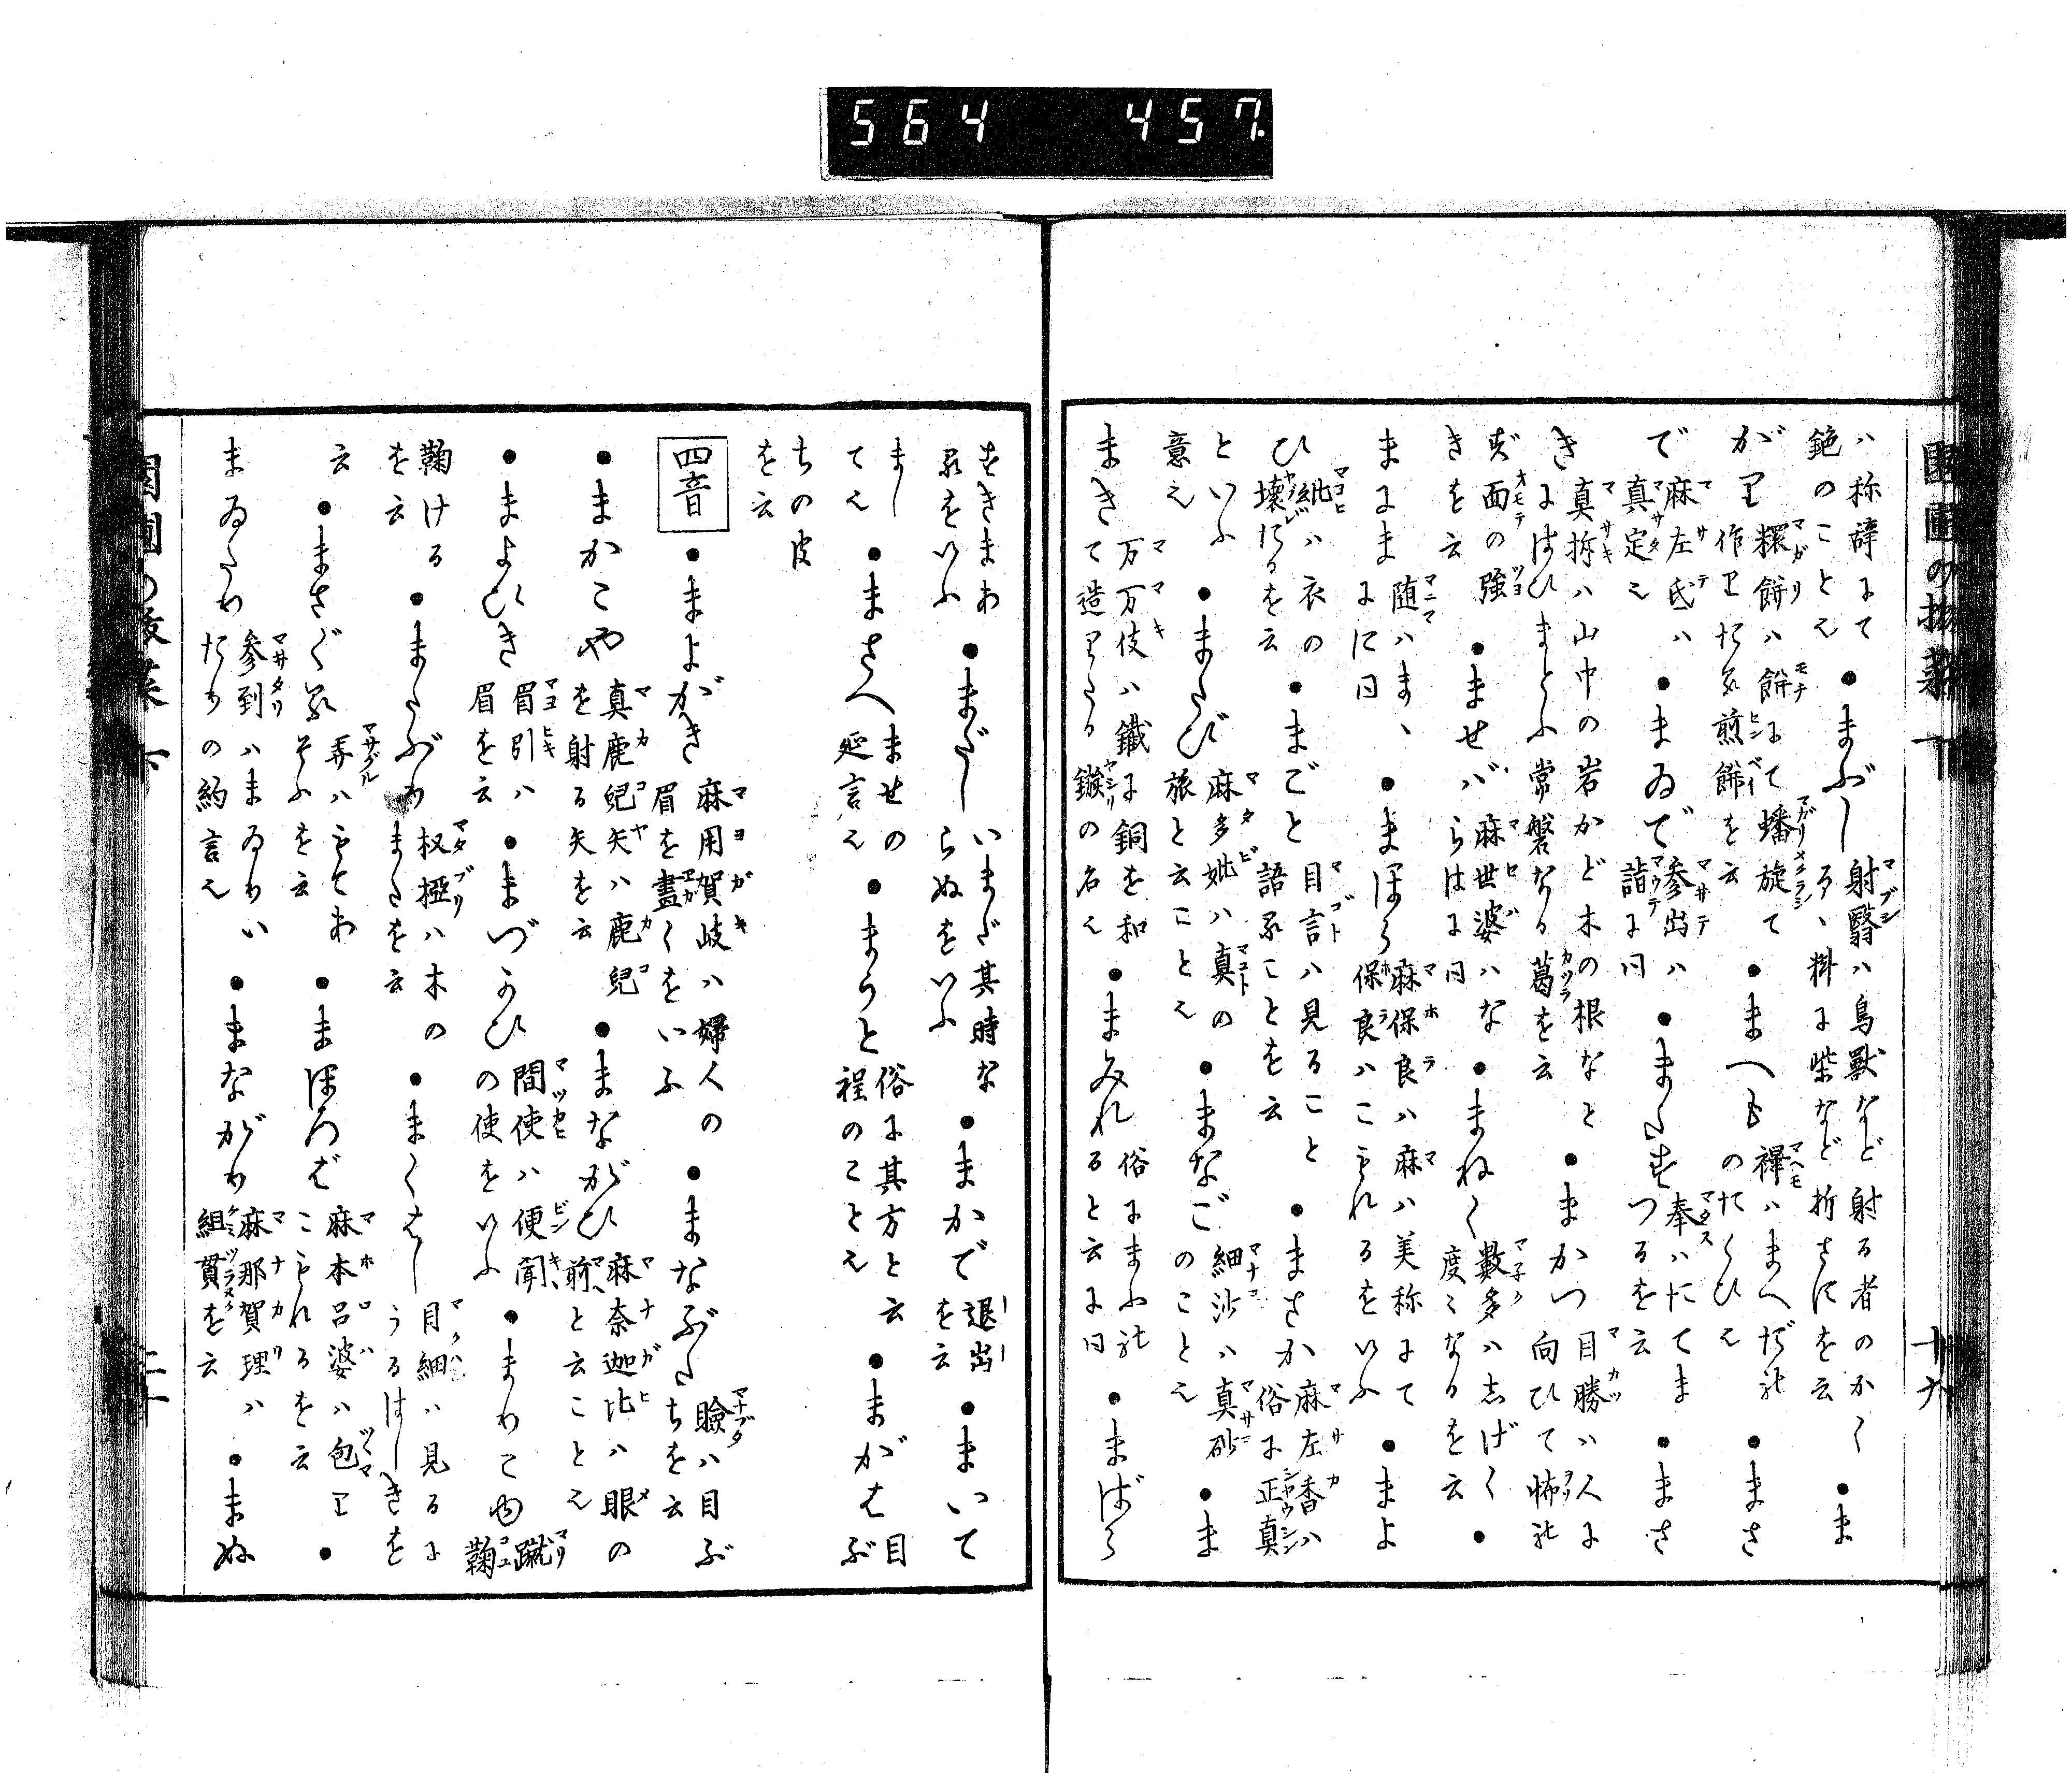 564 457
ハ称辞にて ●まぶし 射翳ハ鳥獣など射る者のかく ●ま
鉋のことえ るゝ料に柴など折さすを云
がり 糫餅ハ餅にて蟠旋て ●まへも 襅ハまへだれ ●まさ
作りたる煎餅を云 のたぐひえ
で 麻左氐ハ ●まゐで 参出ハ ●またす 奉ハたてま ●まさ
真定え 詣に同 つるを云
き 真拆ハ山中の岩かど木の根など ●まかつ 目勝ハ人に
にはひまとふ常磐なる葛を云 向ひて怖れ
ず面の強 ●ませば 麻世婆ハな ●まねく 數多ハしげく ●
きを云 らはに同 度々なるを云
まにま 随ハまゝ ●まほら 麻保良ハ麻ハ美称にて ●まよ
にに同 保良ハこもれるをいふ
ひ 紕ハ衣の ●まごと 目言ハ見ること ●まさか 麻左香ハ
壊たるを云 語ることを云 俗に正真
といふ ●またび 麻多妣ハ真の ●まなご 細沙ハ真砂 ●ま
意え 旅と云ことえ のことえ
まきて 万万伎ハ鐵に銅を和 ●まみれ 俗にまふれ ●まばら
造りたる鏃の名え ると云に同
すきまあ ●まだし いまだ其時な ●まかで 退出 ●まいて
るをいふ らぬをいふ を云
まし ●まさへ ませの ●まうと 俗に其方と云 ●まがはぶ 目
てえ 延言え 程のことえ ぶ
ちの皮
を云
四音 ●まよがき 麻用賀岐ハ婦人の ●まなぶた 瞼ハ目ぶ
眉を畫くをいふ ちを云
●まかこや 真鹿兒矢ハ鹿兒 ●まながひ 麻奈迦比ハ眼の
を射る矢を云 前と云ことえ
●まよひき 眉引ハ ●まづかひ 間使ハ便聞 ●まりこゆ 蹴
眉を云 の使をいふ 鞠
鞠ける ●またぶり 杈椏ハ木の ●まくはし 目細ハ見るに
を云 またを云 うるはしきを
云 ●まさぐる 弄ハもてあ ●まほろば 麻本呂婆ハ包り ●
そふを云 こもれるを云
まゐたり 参到ハまゐりい ●まながり 麻那賀理ハ ●まぬ
たりの約言え 組貫を云
十六